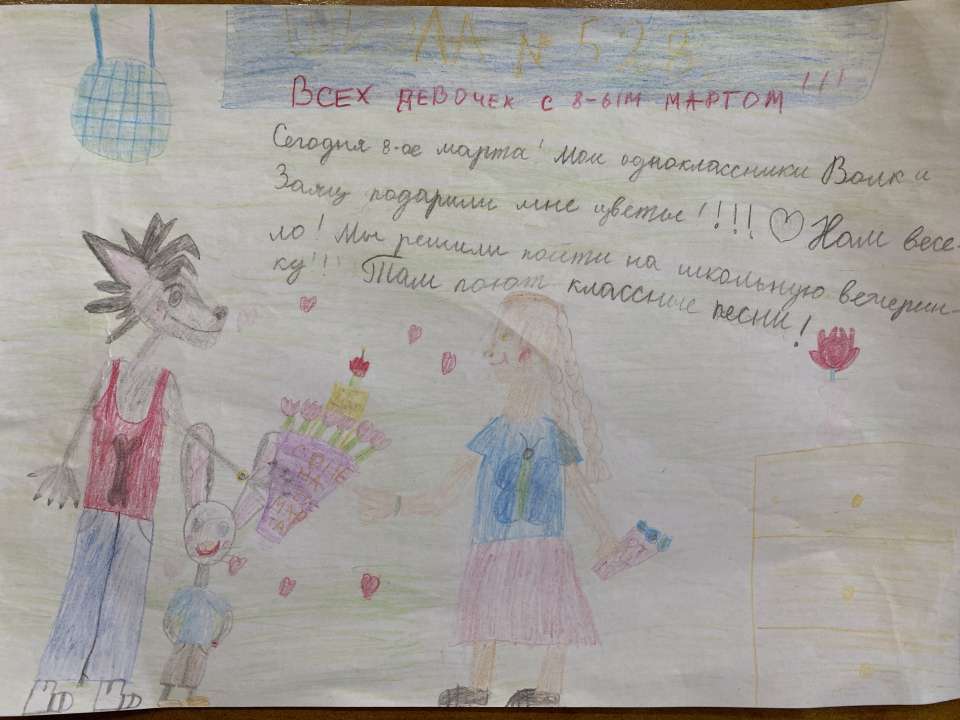 ШКОЛА № 528
ВСЕХ ДЕВОЧЕК С 8-ЫМ МАРТОМ!!!
Сегодня 8-ое марта! Мои одноклассники Волк и
Заяц подарили мне цветы!!!! Нам весе-
ло! Мы решили пойти на школьную вечерин-
ку!!! Там поют классные песни!